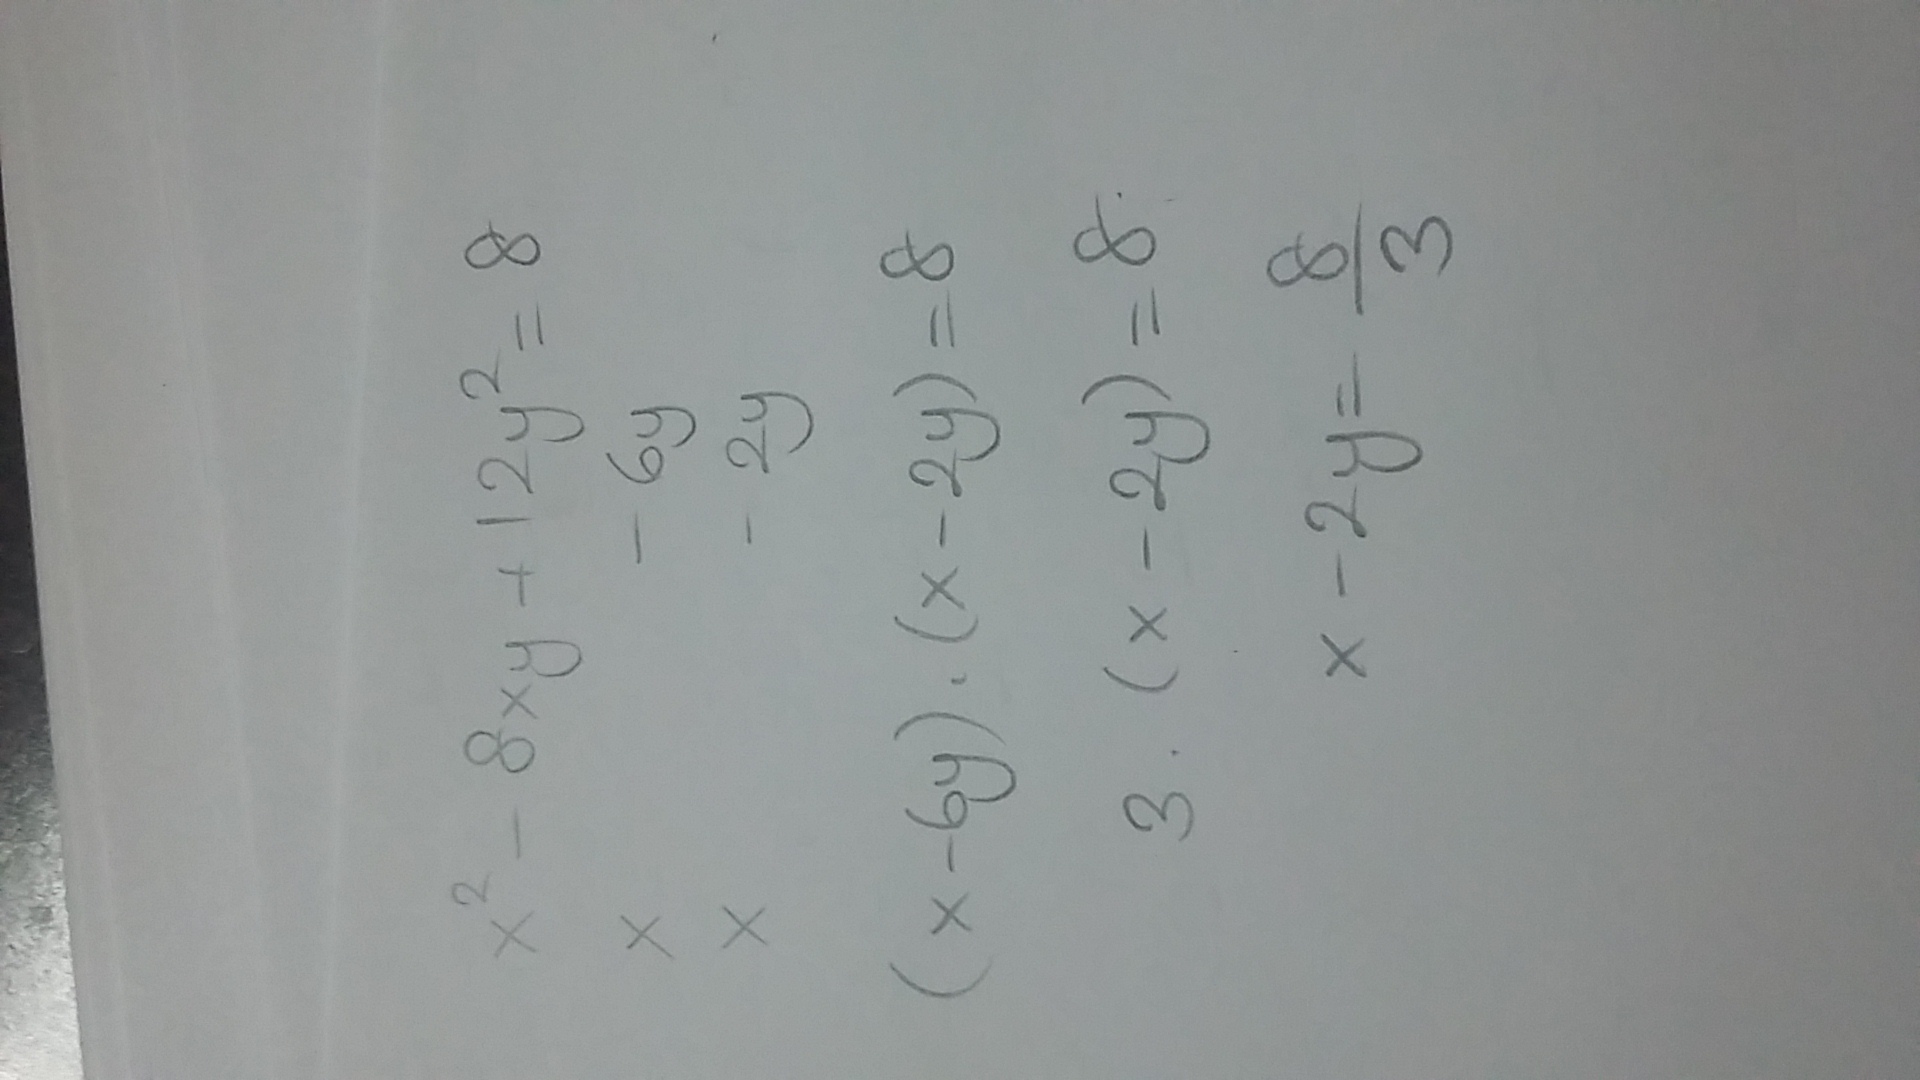 x² - 8xy + 12y² = 8
x - 6y
x - 2y
(x-6y).(x-2y)=8
3.(x-2y)=8
x-2y=8/3